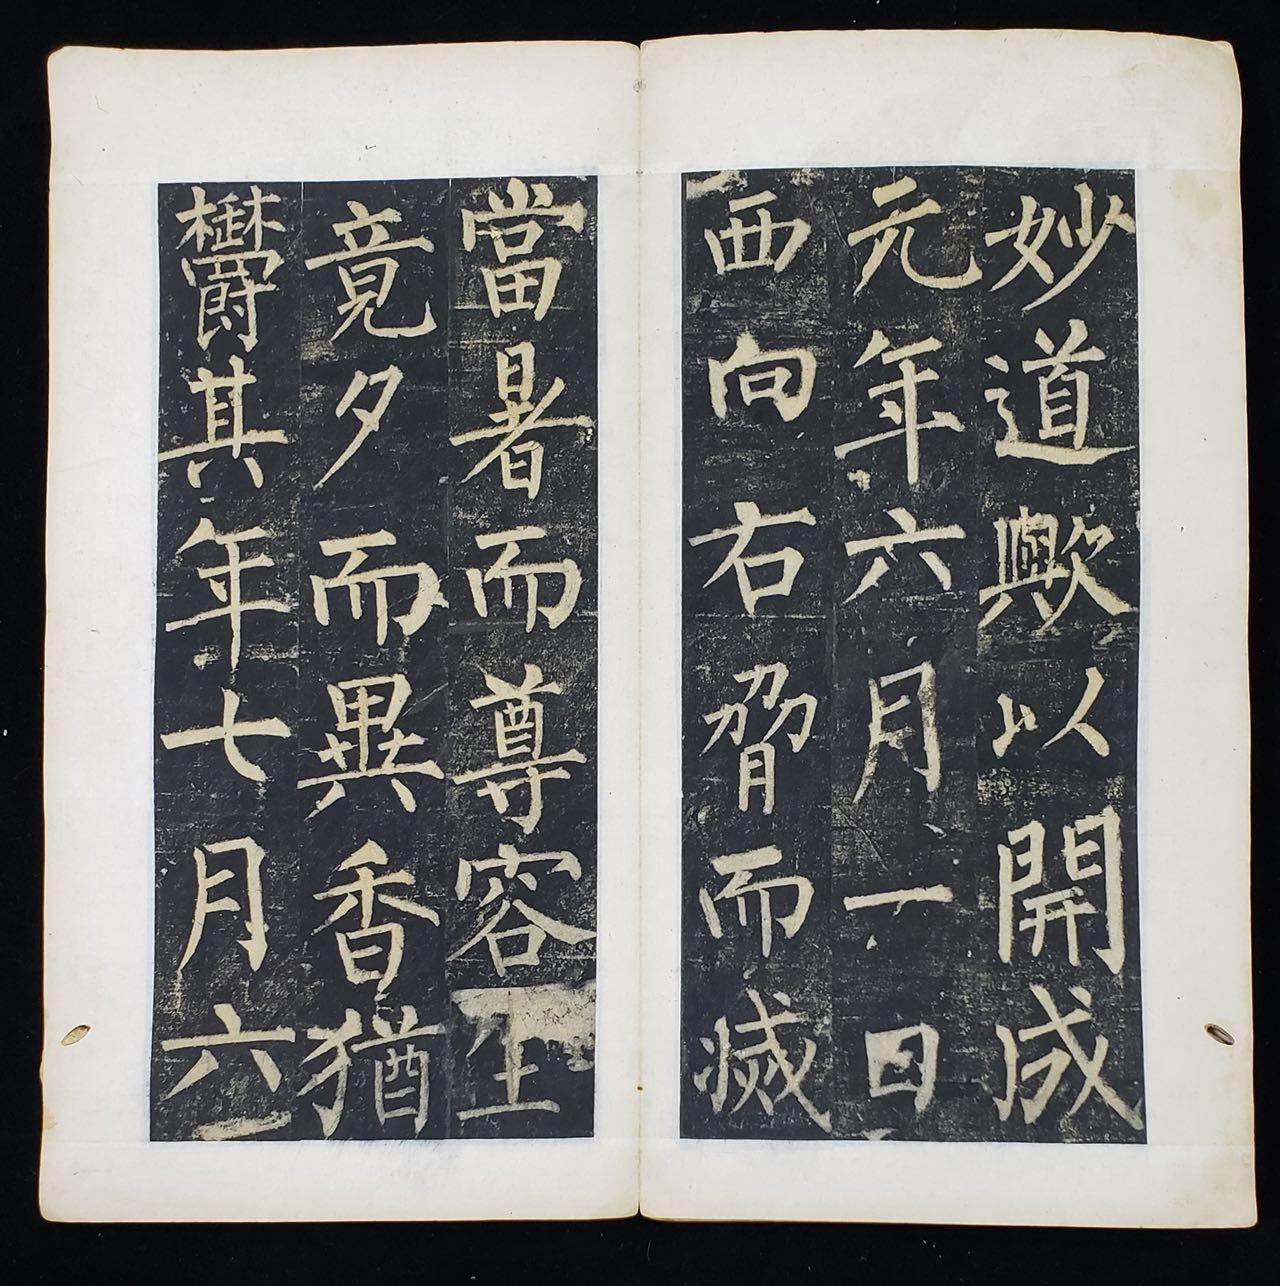 妙道歟以開成
元年六月一日
西向右脅而滅
當暑而尊容生
竟夕而異香猶
欝其年七月六